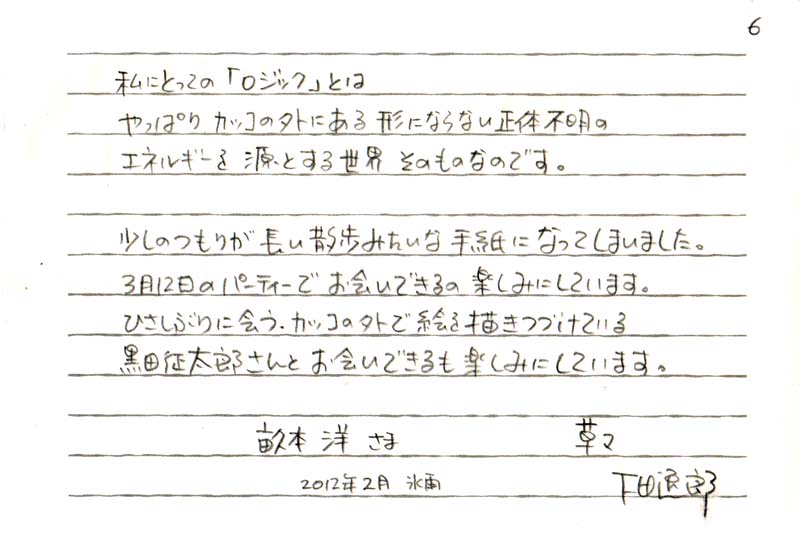 6
私にとっての「ロジック」とは
やっぱり、カッコの外にある 形にならない正体不明の
エネルギーを 源とする世界 そのものなのです。
少しのつもりが 長い散歩みたいな 手紙に なってしまいました。
3月12日の パーティーで お会いできるの 楽しみにしています。
ひさしぶりに会う、カッコの外で 絵を描きつづけている
黒田征太郎さんと お会いできるも 楽しみにしています。
畝本 洋 さま 草々
2012年2月 氷雨
下田逸郎